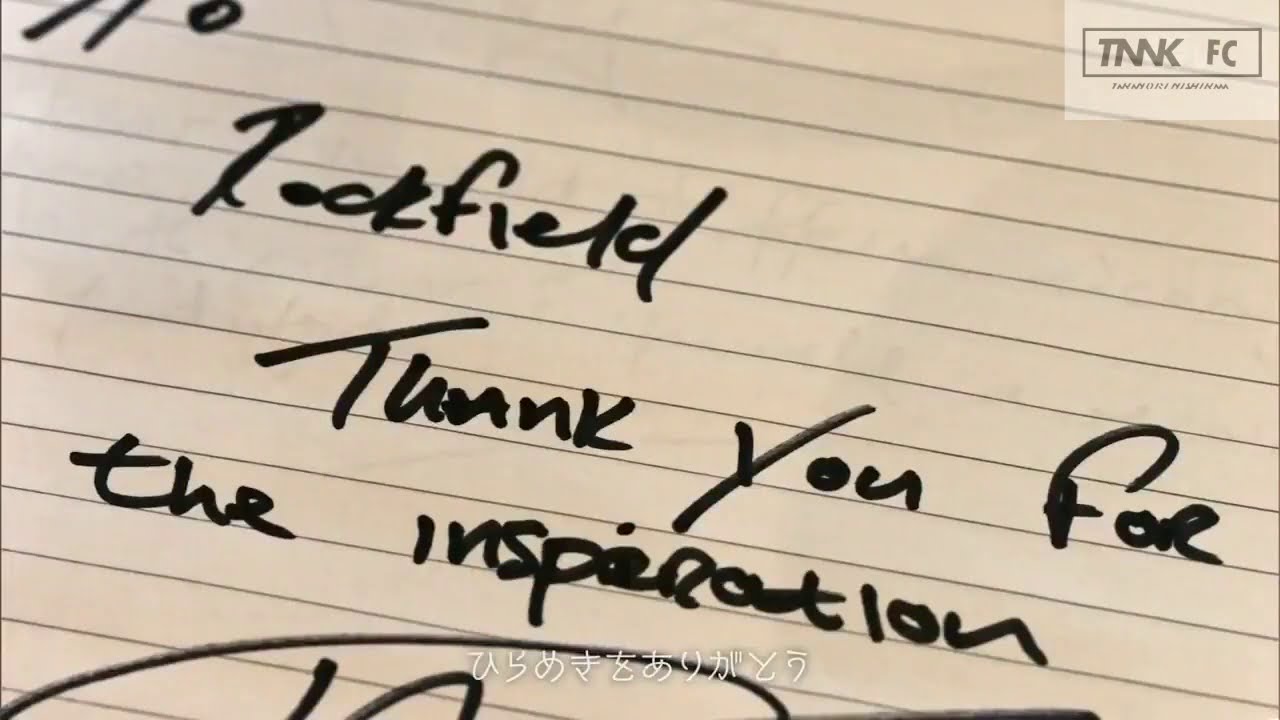 To
Rockfield
Thank you for
the inspiration
ひらめきをありがとう
TNNK FC
TAKANORI NISHIKAWA